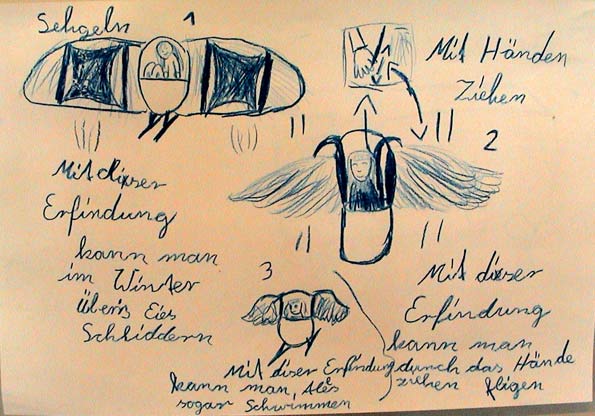 Sehgeln
1
Mit Händen
Ziehen
2
Mit dieser
Erfindung
kann man
im Winter
übers Eies
Schliddern
Mit dieser
Erfindung
kann man
durch das Hände
ziehen fligen
3
Mit diser Erfindung
kann man, Ales
sogar Schwimmen